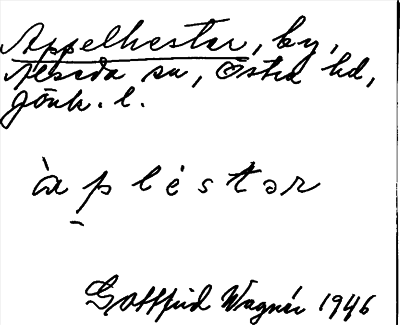 Appelhestar, by,
Alseda sn, Östra hd,
Jönk. l.
àp̱léstər
Gottfrid Wagnér 1946